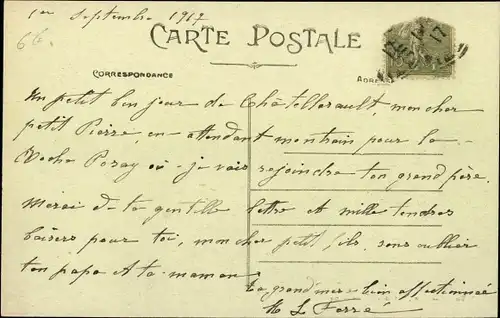 1er Septembre 1917
CARTE POSTALE
CORRESPONDANCE
ADRE
Un petit bonjour de Châtellerault, mon cher
petit Pierre, en attendant mon train pour la
Roche Posay où je vais rejoindre ton grand père.
Merci de ta gentille lettre et mille tendres
baisers pour toi, mon cher petit fils, sans oublier
ton papa et ta maman.
Ta grand'mère bien affectionnée
L Ferré